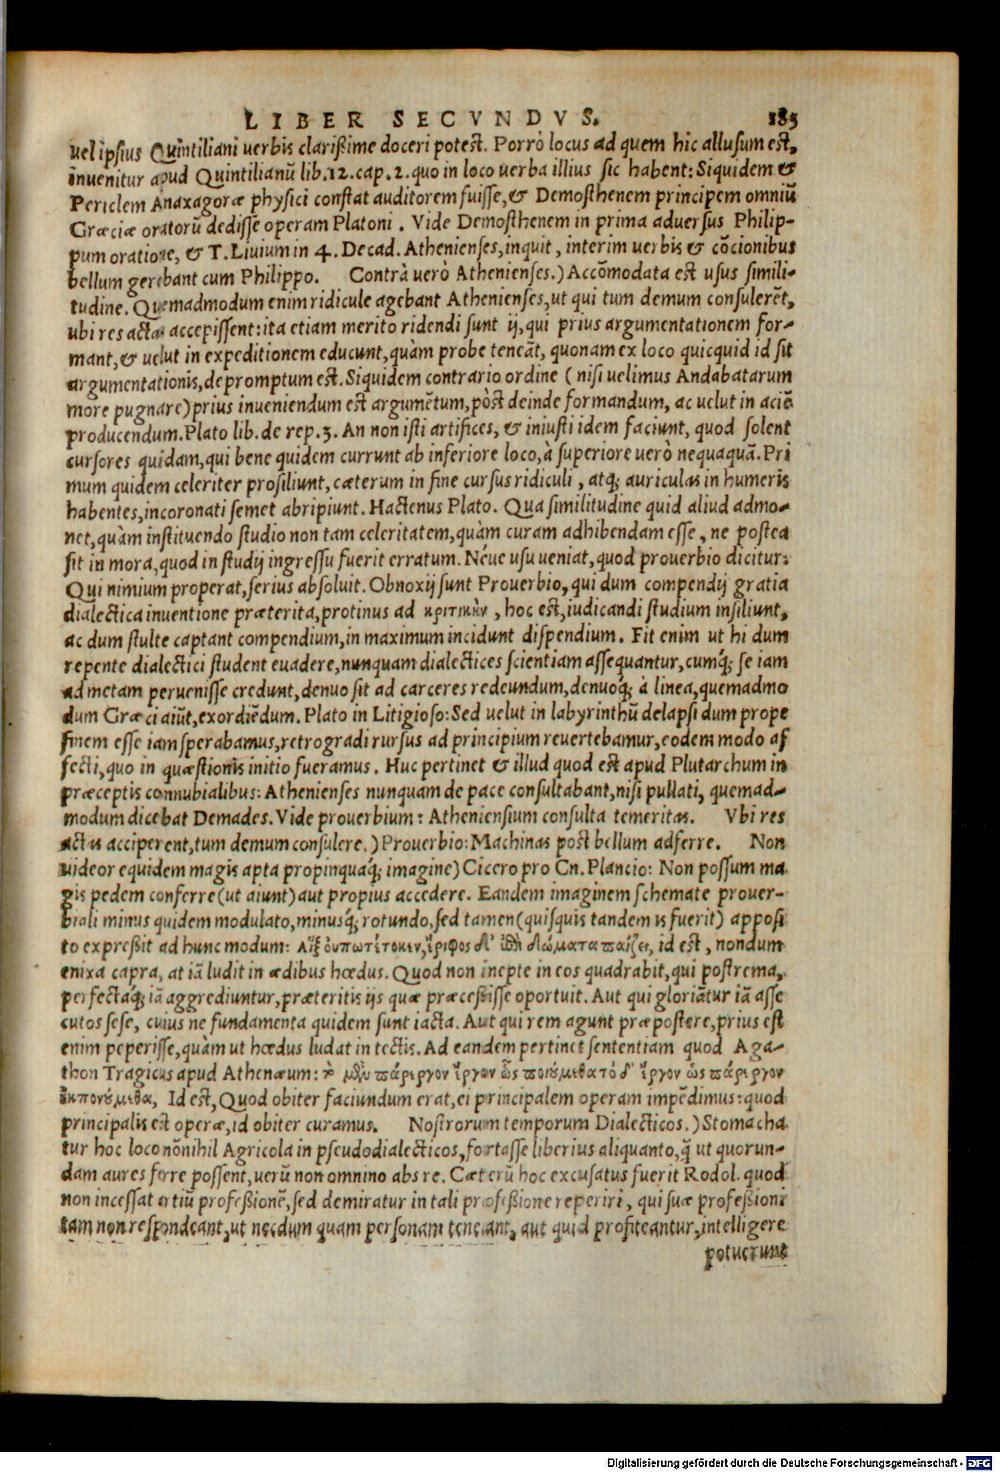 LIBER SECVNDVS. 185
uel ipsius Quintiliani uerbis clarißime doceri potest. Porrò locus ad quem hic allusum est,
inuenitur apud Quintilianū lib.12.cap.2.quo in loco uerba illius sic habent: Siquidem &
Periclem Anaxagoræ physici constat auditorem fuisse, & Demosthenem principem omniū
Græciæ oratorū dedisse operam Platoni. Vide Demosthenem in prima aduersus Philip-
pum oratione, & T. Liuium in 4. Decad. Athenienses, inquit, interim uerbis & cōcionibus
bellum gerebant cum Philippo. Contrà uerò Athenienses.) Accōmodata est usus simili-
tudine. Quemadmodum enim ridicule agebant Athenienses, ut qui tum demum consulerēt,
ubi res actas accepissent: ita etiam merito ridendi sunt ij, qui prius argumentationem for-
mant, & uelut in expeditionem educunt, quàm probe teneāt, quonam ex loco quicquid id sit
argumentationis, depromptum est. Siquidem contrario ordine (nisi uelimus Andabatarum
more pugnare) prius inueniendum est argumētum, pòst deinde formandum, ac uelut in aciē
producendum. Plato lib. de rep. 3. An non isti artifices, & iniusti idem faciunt, quod solent
cursores quidam, qui bene quidem currunt ab inferiore loco, à superiore uerò nequaquā. Pri
mum quidem celeriter prosiliunt, cæterum in fine cursus ridiculi, atq; auriculas in humeris
habentes, incoronati semet abripiunt. Hactenus Plato. Qua similitudine quid aliud admo-
net, quàm instituendo studio non tam celeritatem, quàm curam adhibendam esse, ne postea
sit in mora, quod in studij ingressu fuerit erratum. Néue usu ueniat, quod prouerbio dicitur:
Qui nimium properat, serius absoluit. Obnoxij sunt Prouerbio, qui dum compendij gratia
dialectica inuentione præterita, protinus ad κριτικὴν, hoc est, iudicandi studium insiliunt,
ac dum stulte captant compendium, in maximum incidunt dispendium. Fit enim ut hi dum
repente dialectici student euadere, nunquam dialectices scientiam assequantur, cumq́; se iam
ad metam peruenisse credunt, denuo sit ad carceres redeundum, denuoq́; à linea, quemadmo
dum Græci aiūt, exordiēdum. Plato in Litigioso: Sed uelut in labyrinthū delapsi dum prope
finem esse iam sperabamus, retrogradi rursus ad principium reuertebamur, eodem modo af
fecti, quo in quæstionis initio fueramus. Huc pertinet & illud quod est apud Plutarchum in
præceptis connubialibus: Athenienses nunquam de pace consultabant, nisi pullati, quemad-
modum dicebat Demades. Vide prouerbium: Atheniensium consulta temeritas. Vbi res
actas acciperent, tum demum consulere.) Prouerbio: Machinas post bellum adferre. Non
uideor equidem magis apta propinquaq́; imagine) Cicero pro Cn. Plancio: Non possum ma
gis pedem conferre (ut aiunt) aut propius accedere. Eandem imaginem schemate prouer-
biali minus quidem modulato, minusq́; rotundo, sed tamen (quisquis tandem is fuerit) apposi
to expreßit ad hunc modum: Αἲξ οὔπω τέτοκεν, ἔριφος δ' ἐπὶ δώματα παίζει, id est, nondum
enixa capra, at iā ludit in ædibus hœdus. Quod non inepte in eos quadrabit, qui postrema,
perfectaq́; iā aggrediuntur, præteritis ijs quæ præceßisse oportuit. Aut qui gloriātur iā asse
cutos sese, cuius ne fundamenta quidem sunt iacta. Aut qui rem agunt præpostere, prius est
enim peperisse, quàm ut hœdus ludat in tectis. Ad eandem pertinet sententiam quod Aga-
thon Tragicus apud Athenæum: τὸ μὲν πάρεργον ἔργον ὣς ποιούμεθα τὸ δ' ἔργον ὡς πάρεργον
ἐκπονούμεθα, Id est, Quod obiter faciundum erat, ei principalem operam impēdimus: quod
principalis est operæ, id obiter curamus. Nostrorum temporum Dialecticos.) Stomacha
tur hoc loco nōnihil Agricola in pseudodialecticos, fortasse liberius aliquanto, q̄ ut quorun-
dam aures ferre possent, uerū non omnino abs re. Cæterū hoc excusatus fuerit Rodol. quod
non incessat artiū profeßionē, sed demiratur in tali profeßione reperiri, qui suæ profeßioni
tam non respondeant, ut necdum quam personam teneant, aut quid profiteantur, intelligere
potuerunt
Digitalisierung gefördert durch die Deutsche Forschungsgemeinschaft - DFG